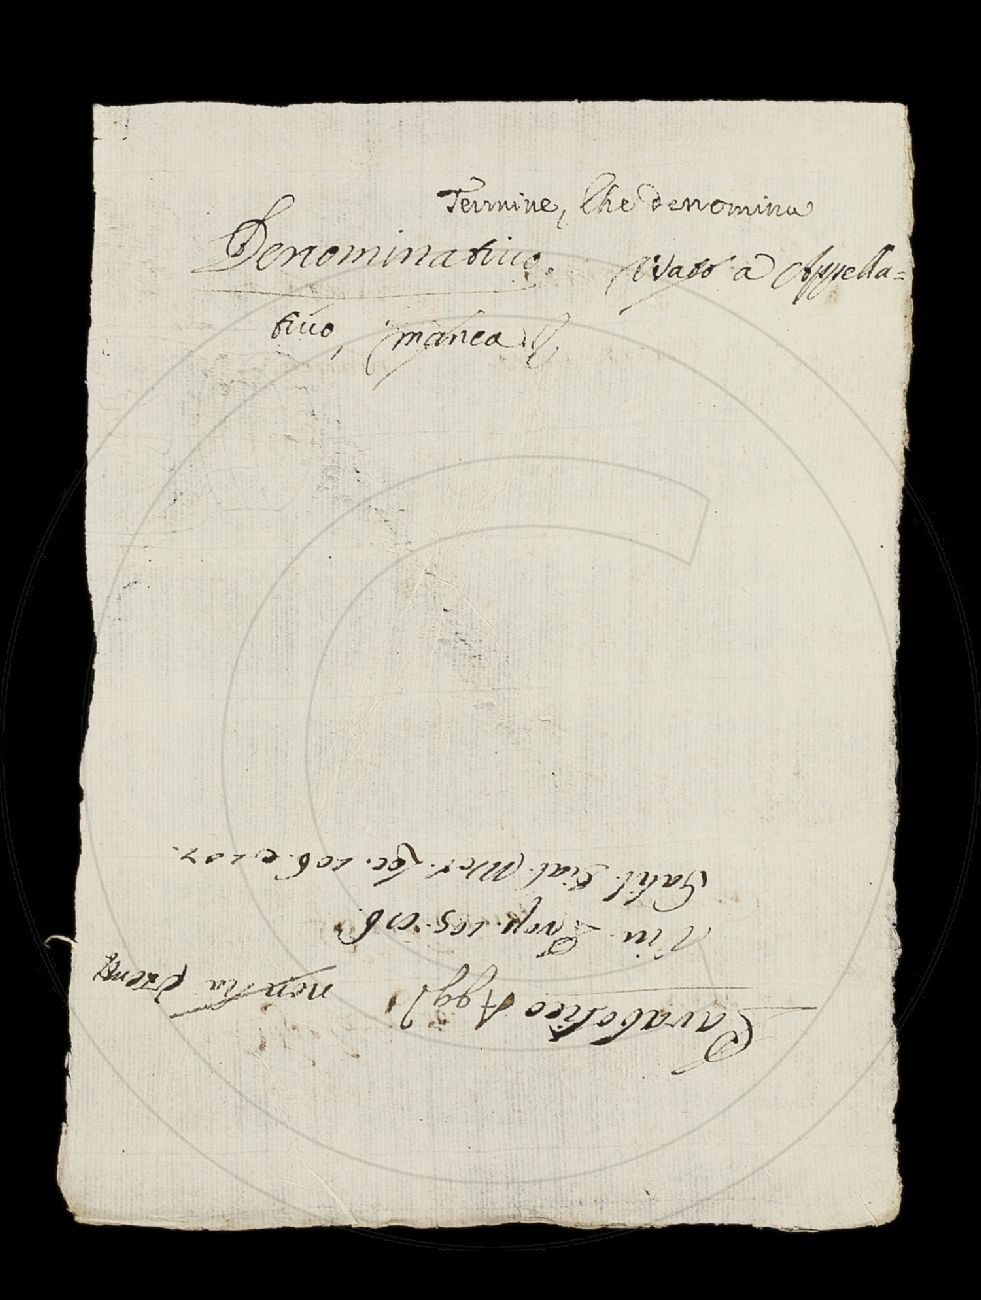 Termine, che denomina
Denominativo. Usato a Appella=
tivo, manca
Parabolico Agg.
non ha esemp.
Viv. Prop. 105. 106.
Galil. Dial. Mot. loc. 106. e 107.